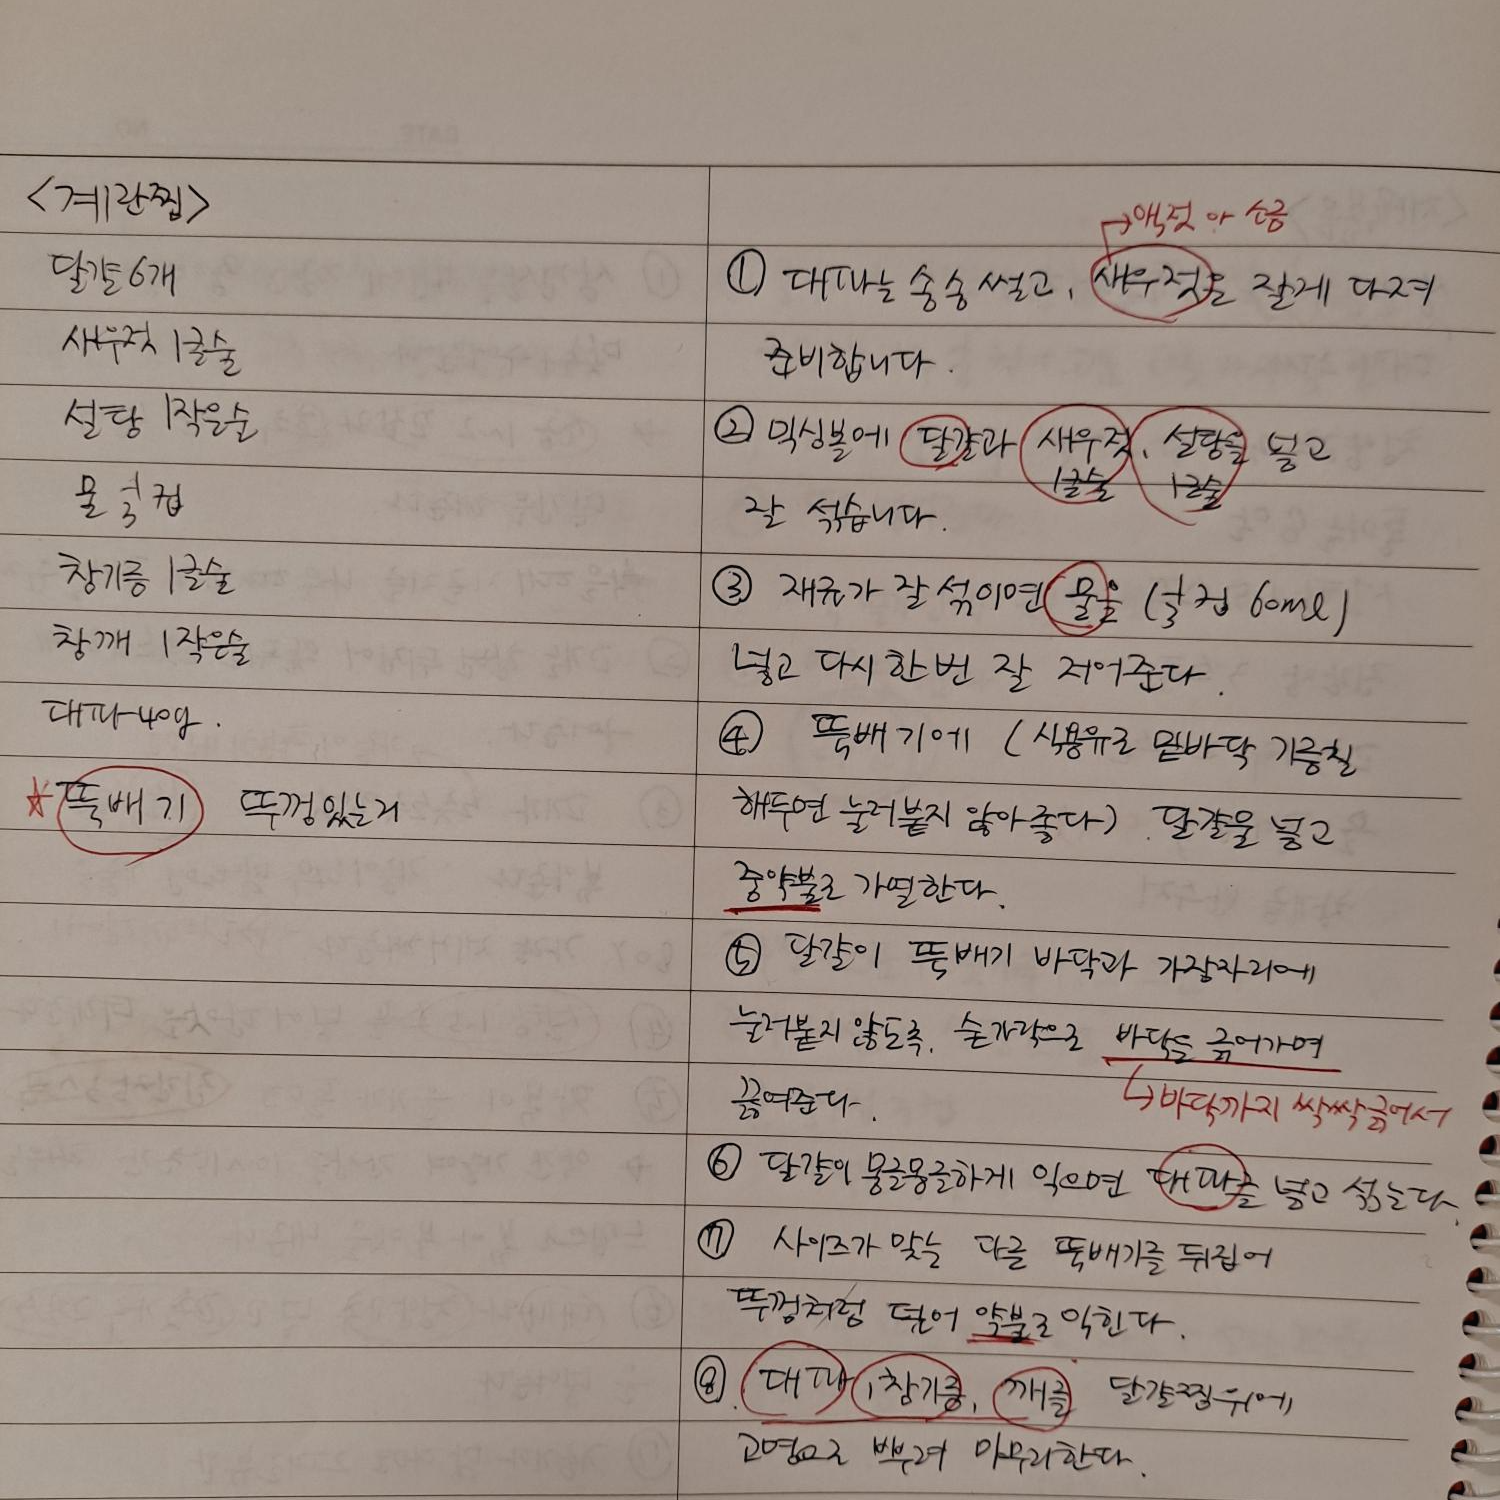 <계란찜>
달걀 6개
새우젓 1큰술
설탕 1작은술
물 1/3컵
참기름 1큰술
참깨 1작은술
대파 40g.
☆ 뚝배기 뚜껑있는거
→액젓 or 소금
① 대파는 송송 썰고, 새우젓을 잘게 다져
준비합니다.
② 믹싱볼에 달걀과 새우젓, 설탕을 넣고
1큰술 1큰술
잘 섞습니다.
③ 재료가 잘 섞이면 물을 (1/3컵 60ml)
넣고 다시 한번 잘 저어준다.
④ 뚝배기에 (식용유로 밑바닥 기름칠
해두면 눌러붙지 않아 좋다). 달걀물 넣고
중약불로 가열한다.
⑤ 달걀이 뚝배기 바닥과 가장자리에
눌러붙지 않도록, 숟가락으로 바닥을 긁어가며
끓여준다.
↳바닥까지 싹싹긁어서
⑥ 달걀이 몽글몽글하게 익으면 대파를 넣고 섞는다.
⑦ 사이즈가 맞는 다른 뚝배기를 뒤집어
뚜껑처럼 덮어 약불로 익힌다.
⑧. 대파, 참기름, 깨를 달걀찜 위에
고명으로 뿌려 마무리한다.